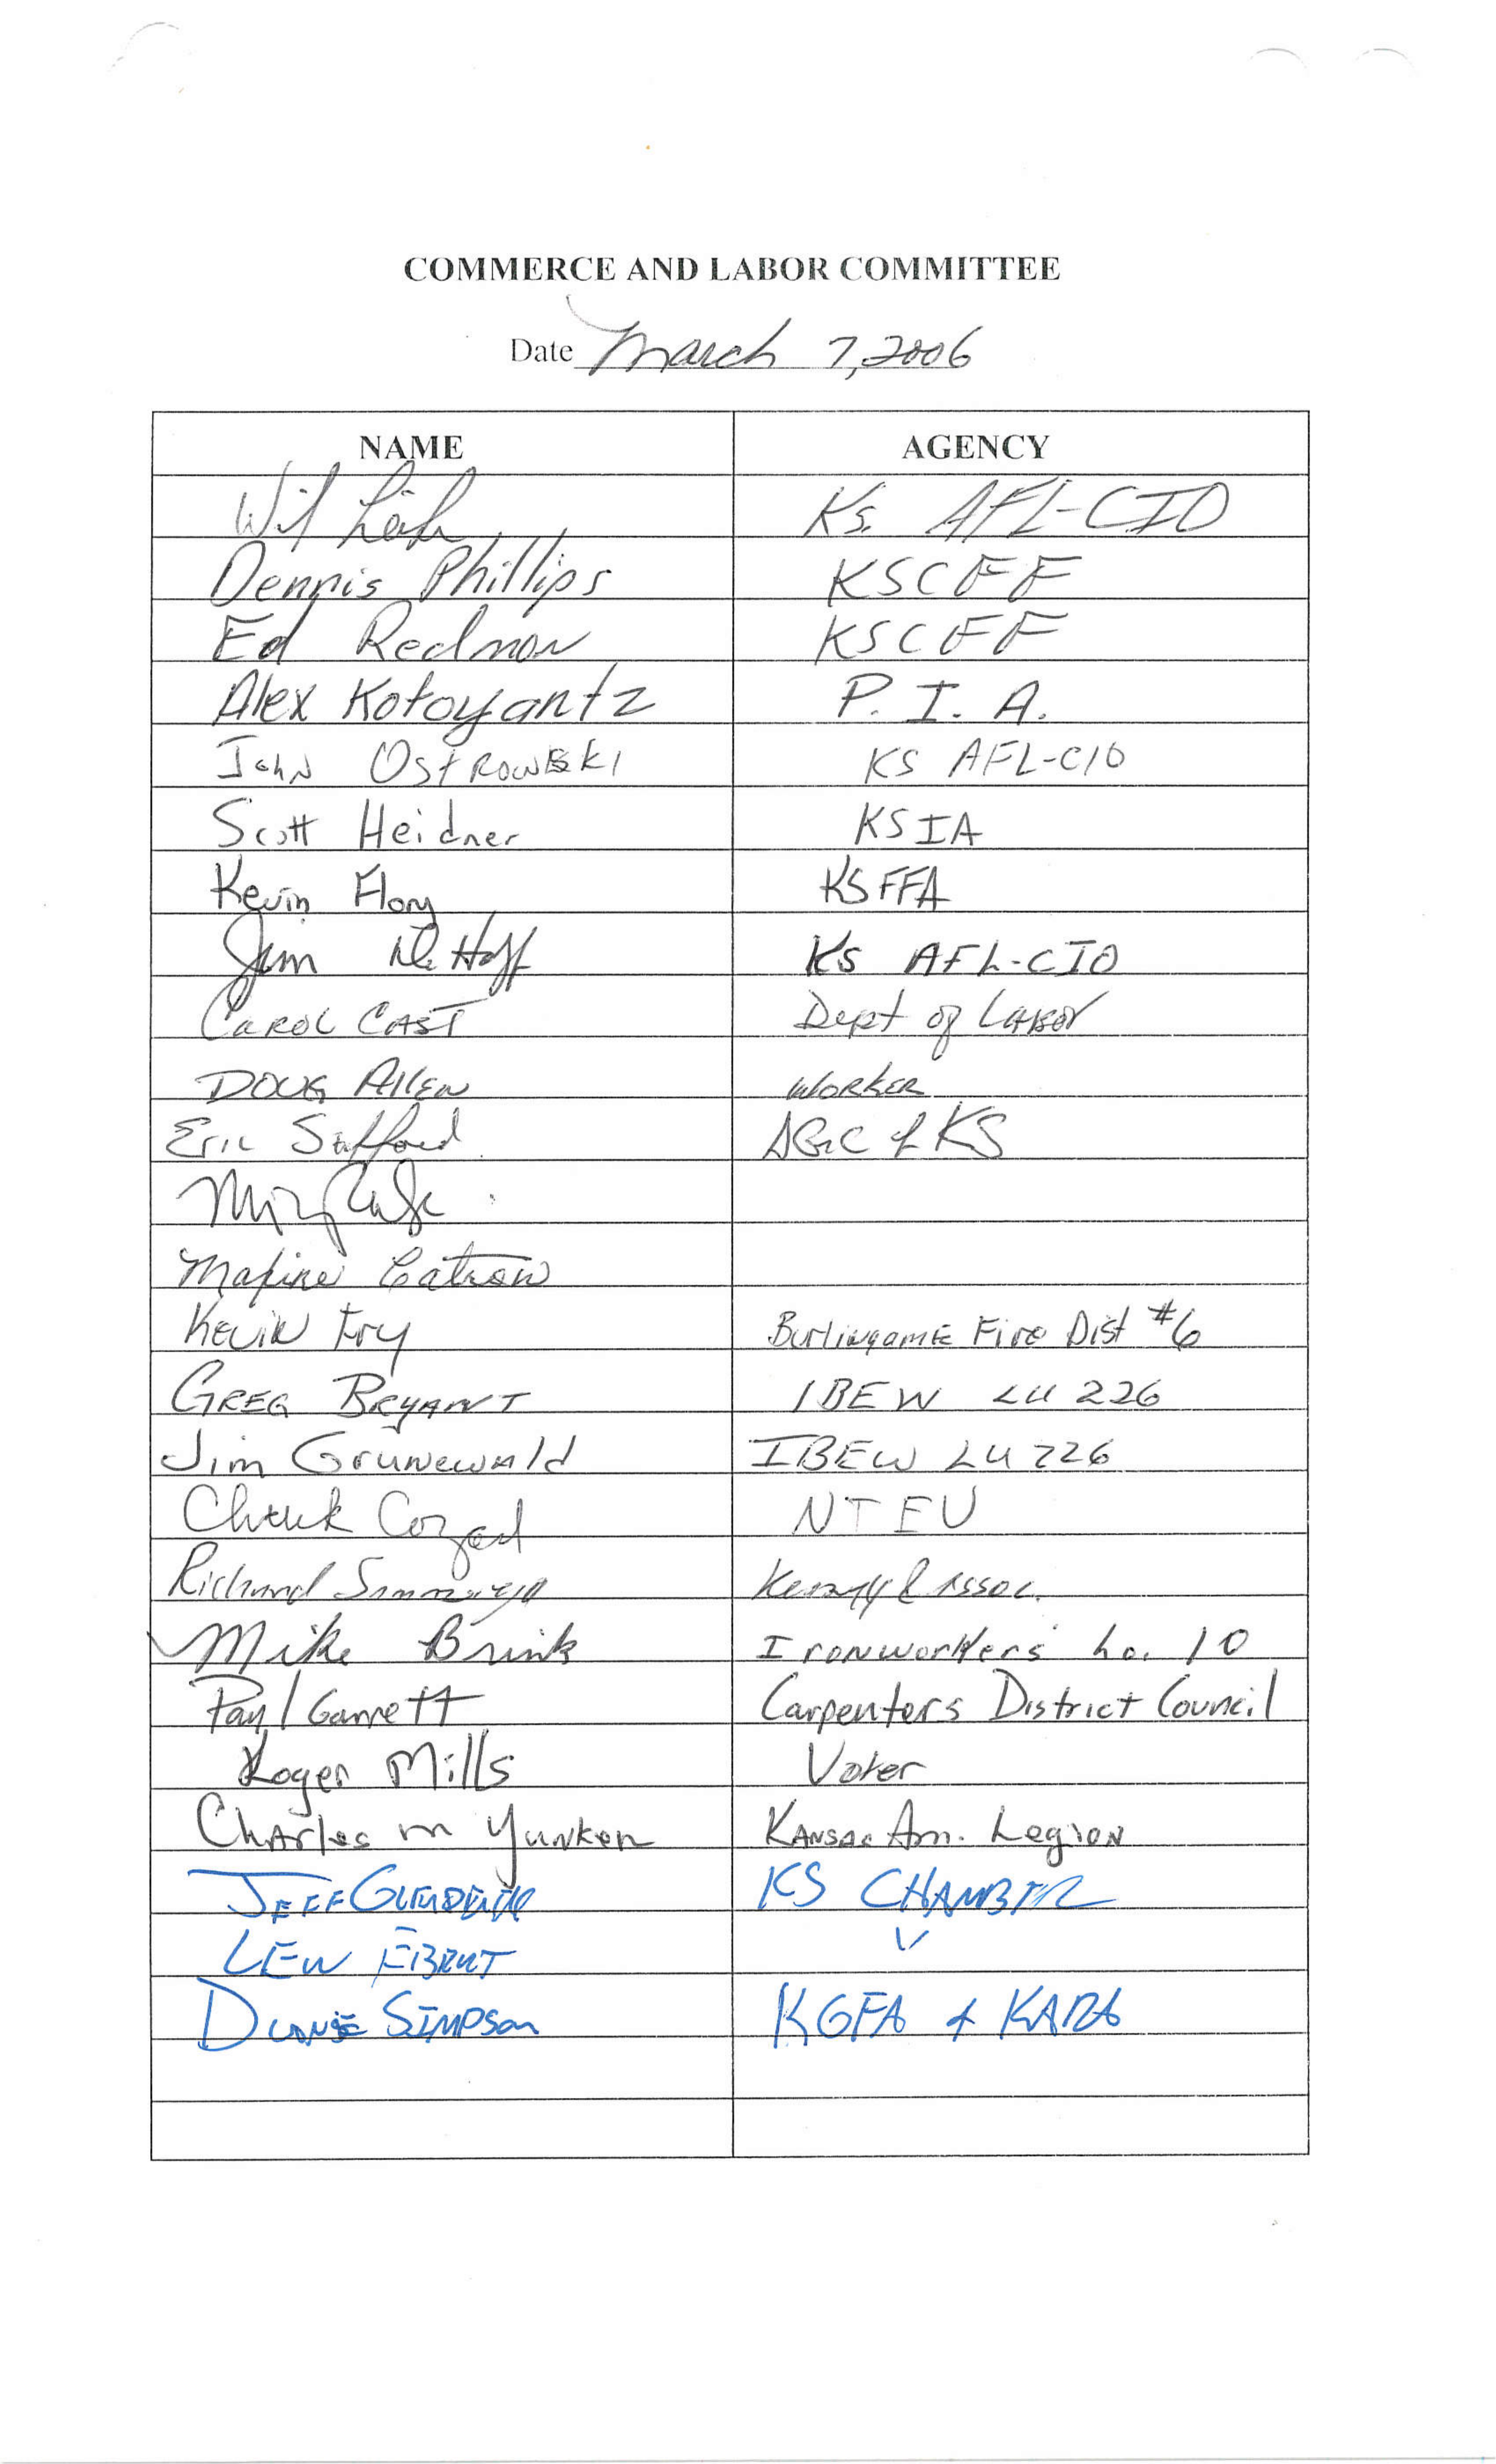 COMMERCE AND LABOR COMMITTEE
Date March 7, 2006
NAME AGENCY
Wil Leih Ks. AFL-CIO
Dennis Phillips KSCFF
Ed Redmon KSCFF
Alex Kotoyantz P. I. A.
John Ostrowski KS AFL-CIO
Scott Heidner KSIA
Kevin Flory KSFFA
Jim DeHoff KS AFL-CIO
CAROL CAST Dept of LABOR
DOUG Allen WORKER
Eric Stafford AGC of KS
Maxine Catron
Kevin Fry Burlingame Fire Dist #6
GREG BRYANT IBEW LU 226
Jim Grunewald IBEW LU 226
Chuck Cozad NTEU
Richard & Assoc.
Mike Brink Ironworkers Lo. 10
Paul Garrett Carpenters District Council
Roger Mills Voter
Charles M Yunker KANSAS Am. Legion
JEFF GLENDENING KS CHAMBER
LEW EBERT
DUANE SIMPSON KGFA + KARA